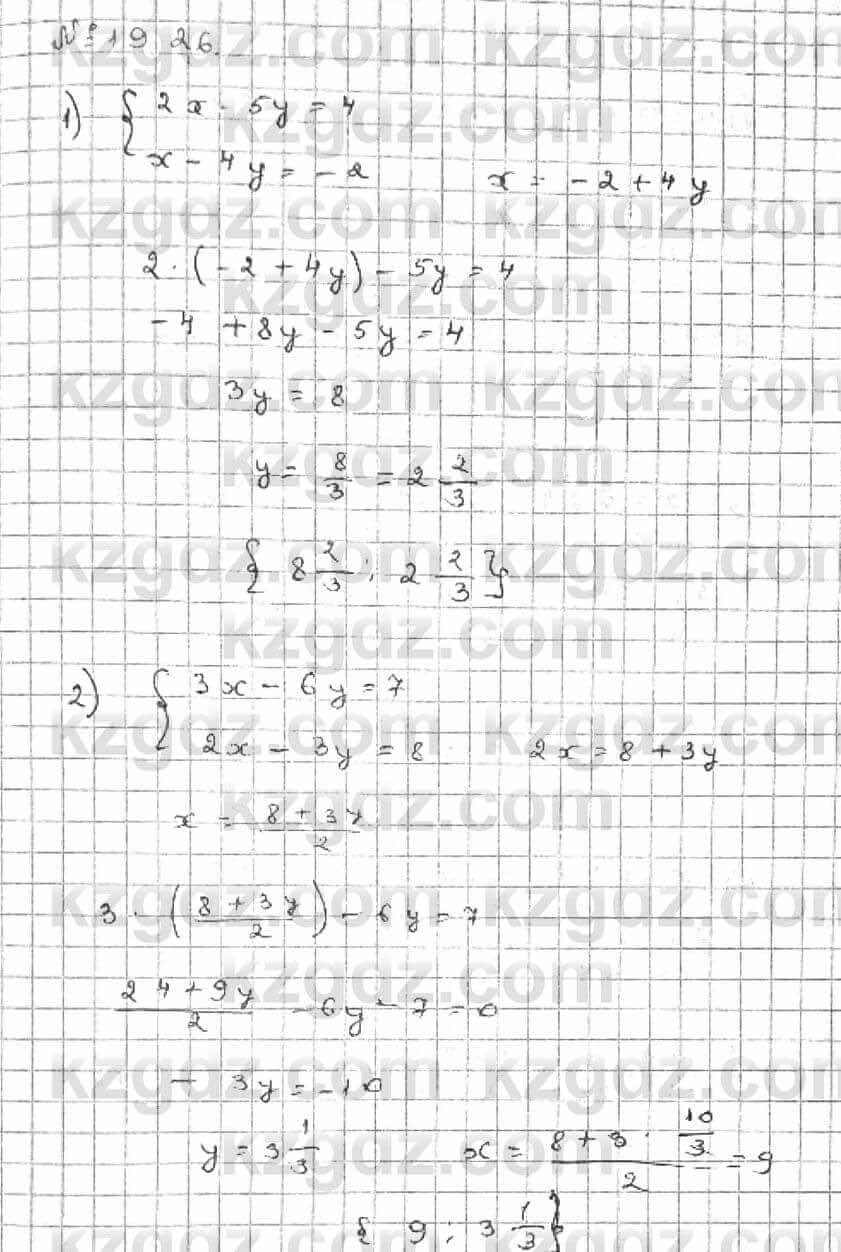 № 1926.
1) { 2x - 5y = 4
x - 4y = -2 x = -2 + 4y
2 · (-2 + 4y) - 5y = 4
-4 + 8y - 5y = 4
3y = 8
y = 8/3 = 2 2/3
{ 8 2/3 ; 2 2/3 }
2) { 3x - 6y = 7
2x - 3y = 8 2x = 8 + 3y
x = (8 + 3y)/2
3 · ((8 + 3y)/2) - 6y = 7
(24 + 9y)/2 - 6y - 7 = 0
- 3y = -10
y = 3 1/3 x = (8 + 3 · 10/3)/2 = 9
{ 9 ; 3 1/3 }
kzgdz.com